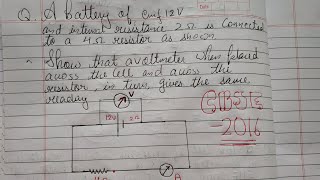 Q. A battery of emf 12V
and internal resistance 2Ω is connected
to a 4Ω resistor as shown
Show that a voltmeter when placed
across the cell and across the
resistor, in turn, gives the same
reading
V
12V
2Ω
CBSE
-2016
4Ω
A